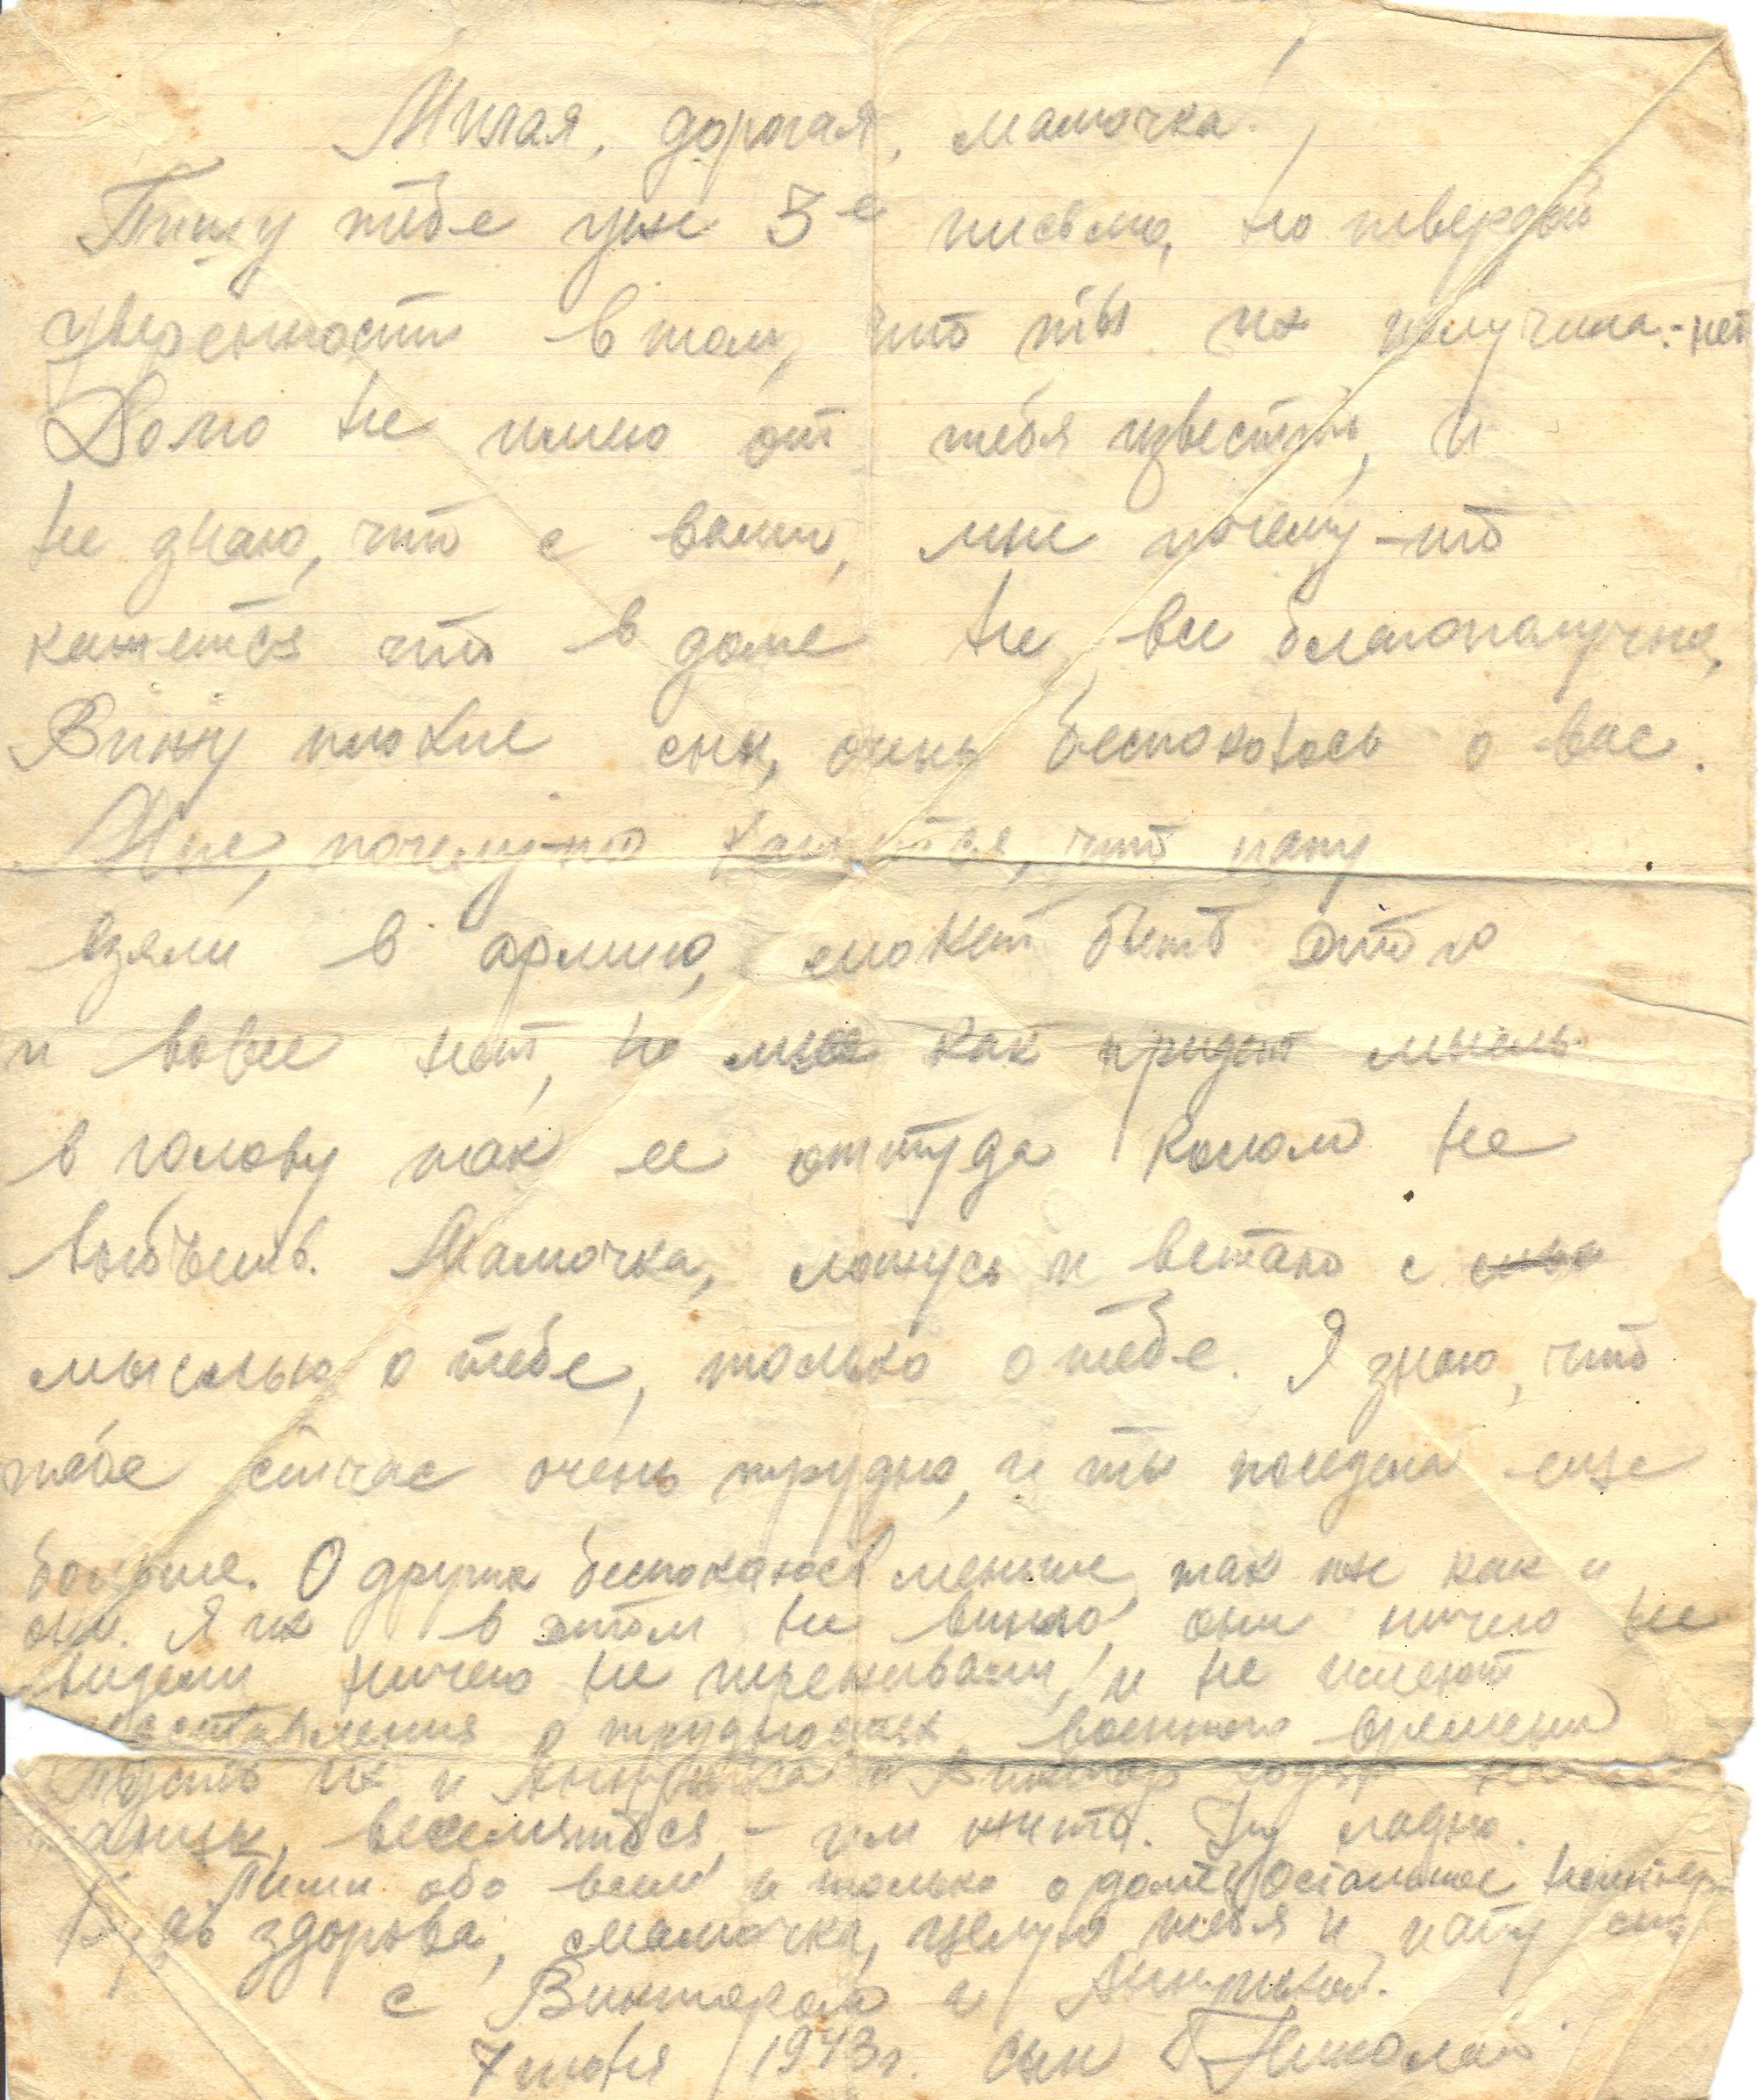 Милая, дорогая, мамочка!
Пишу тебе уже 3-е письмо, но твердой
уверенности в том, что ты их получила - нет
Долго не имею от тебя известий, и
не знаю, что с вами, мне почему-то
кажется что в доме не все благополучно,
Вижу плохие сны, очень беспокоюсь о вас.
Мне, почему-то кажется, что папу
взяли в армию, может быть этого
и вовсе нет, но мне как придет мысль
в голову так ее оттуда колом не
выбьешь. Мамочка, ложусь и встаю с
мыслью о тебе, только о тебе. Я знаю, что
тебе сейчас очень трудно, и ты поседела еще
больше. О других беспокоюсь меньше, так же как и
они. Я их в этом не виню, они ничего не
видели ничего не переживали, и не имеют
представления о трудностях военного времени
Пусть их и и Виктор ходят
веселятся, - им жить. Ну ладно.
Пиши обо всем и только о доме, остальное
Будь здорова, мамочка, целую тебя и папу
с Виктором и
7 июня 1943 г. сын Николай